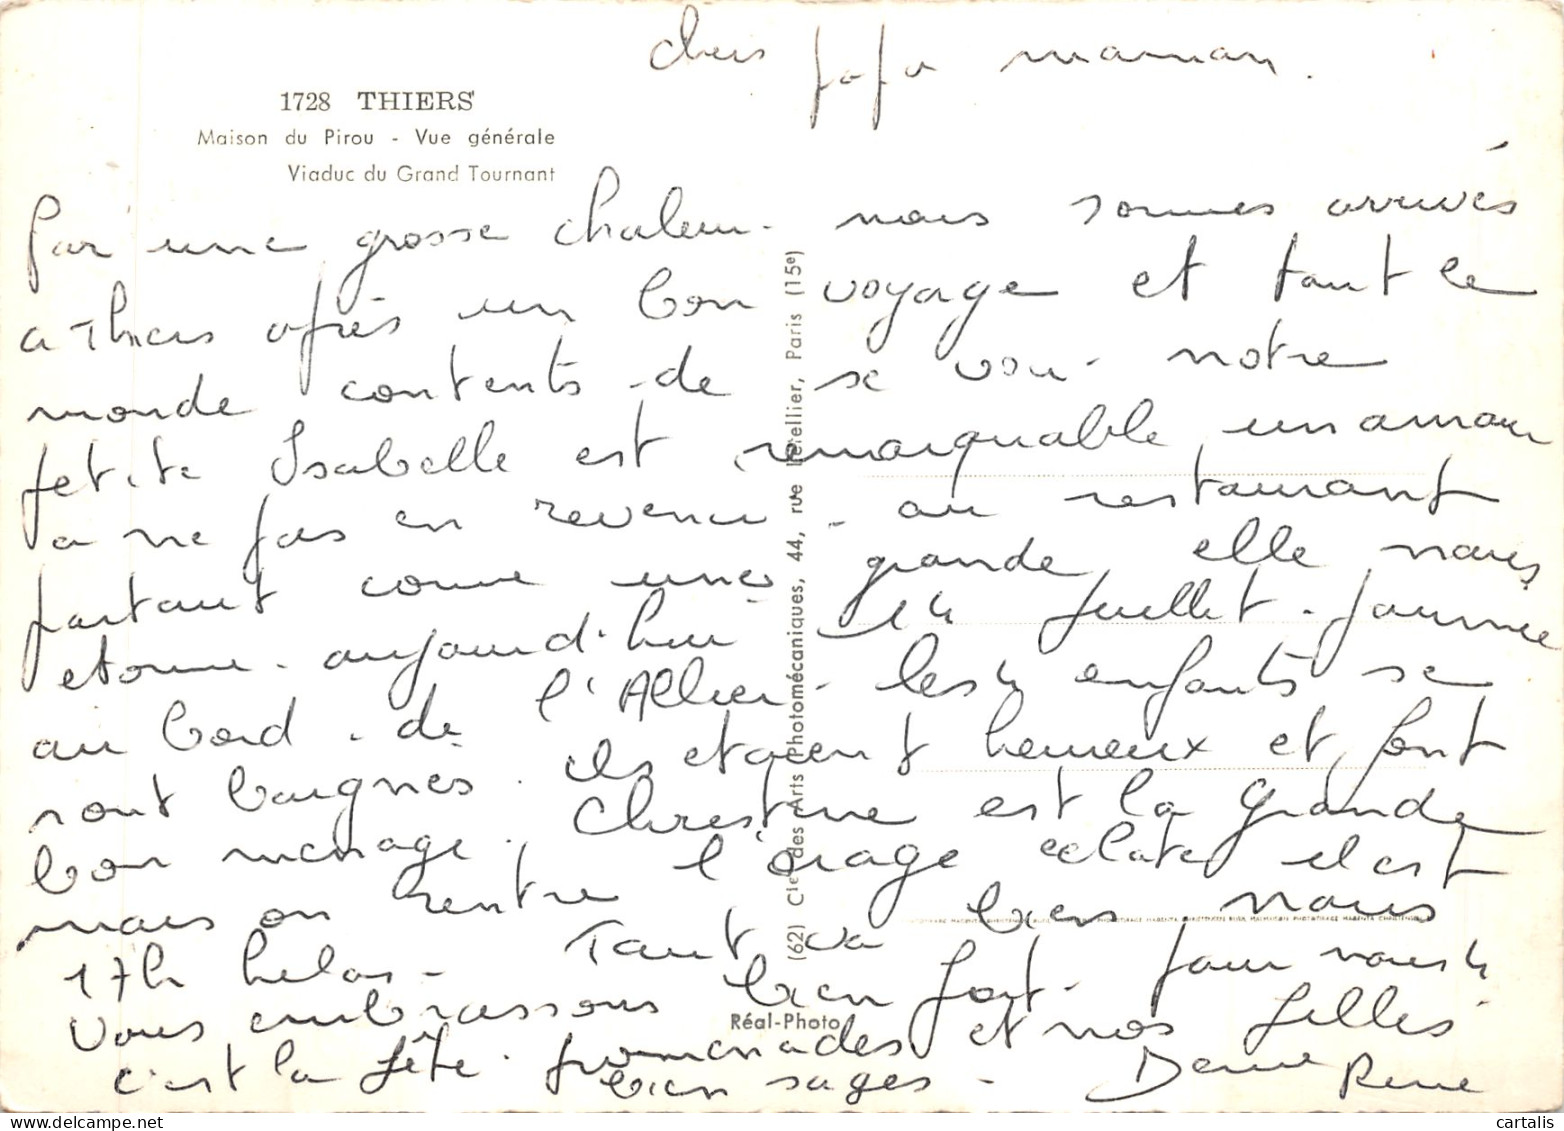 chers papa maman.
1728 THIERS
Maison du Pirou - Vue générale
Viaduc du Grand Tournant
Par une grosse chaleur nous sommes arrivés
a Thiers après un bon voyage et tout le
monde contents de se voir. notre
petite Isabelle est remarquable, un amour
a ne pas en revenir. au restaurant
partout comme une grande, elle nous
etonne. aujourd'hui 14 Juillet. journée
au bord de l'Allier. les 4 enfants se
sont baignes. ils etaient heureux et font
bon menage. Christine est la grande
mais on rentre l'orage eclate il est
17h helas. Tout va bien nous
vous embrassons bien fort. pour nous 4
c'est la fête. promenades et nos filles
bien sages. René
(62) Cie des Arts Photomécaniques, 44, rue Letellier, Paris (15e)
Réal-Photo
www.delcampe.net
cartalis